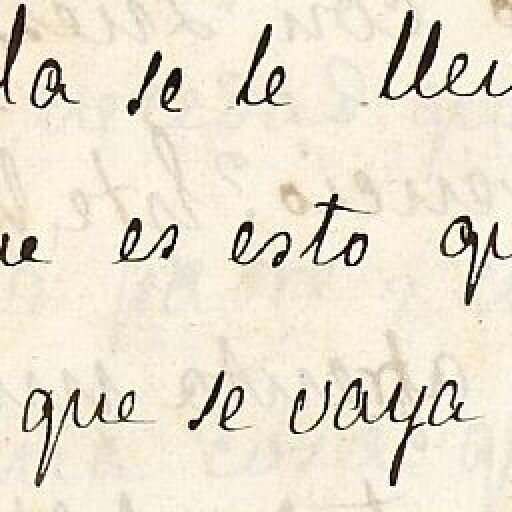 la se le lleu
ue es esto qu
que se vaya